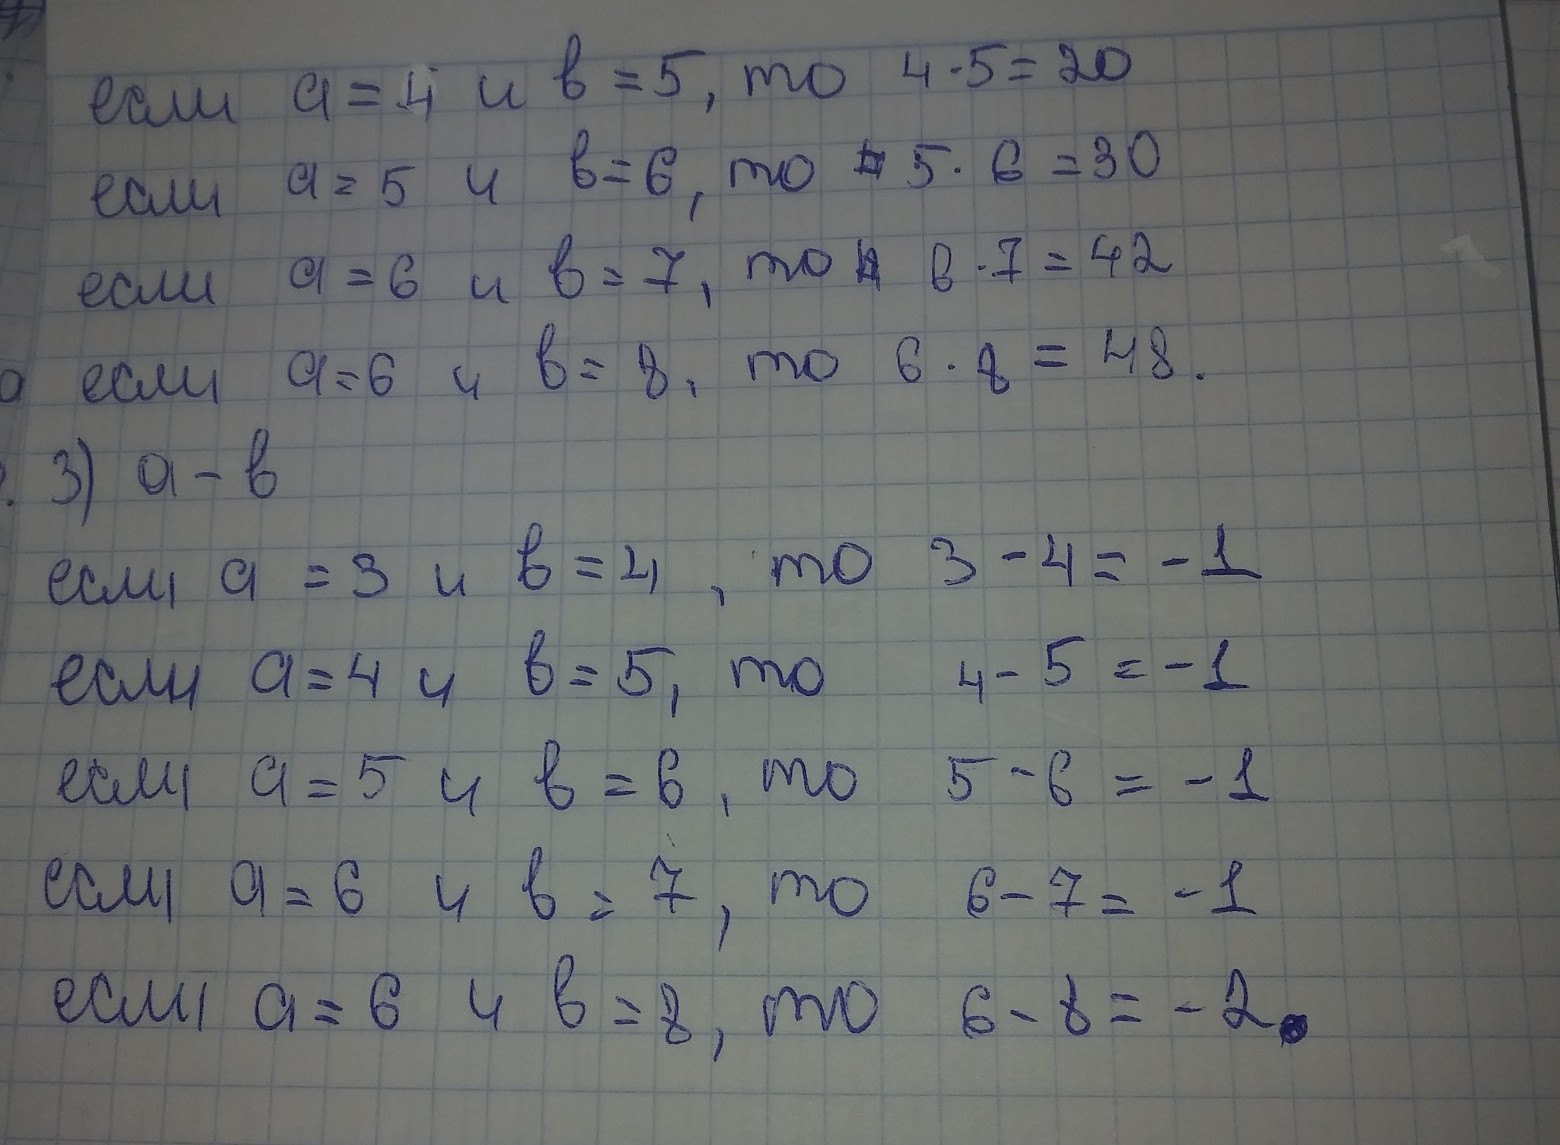 если a = 4 и в = 5, то 4 · 5 = 20
если a = 5 и в = 6, то 5 · 6 = 30
если a = 6 и в = 7, то 6 · 7 = 42
если a = 6 и в = 8, то 6 · 8 = 48.
3) a - в
если a = 3 и в = 4, то 3 - 4 = -1
если a = 4 и в = 5, то 4 - 5 = -1
если a = 5 и в = 6, то 5 - 6 = -1
если a = 6 и в = 7, то 6 - 7 = -1
если a = 6 и в = 8, то 6 - 8 = -2.